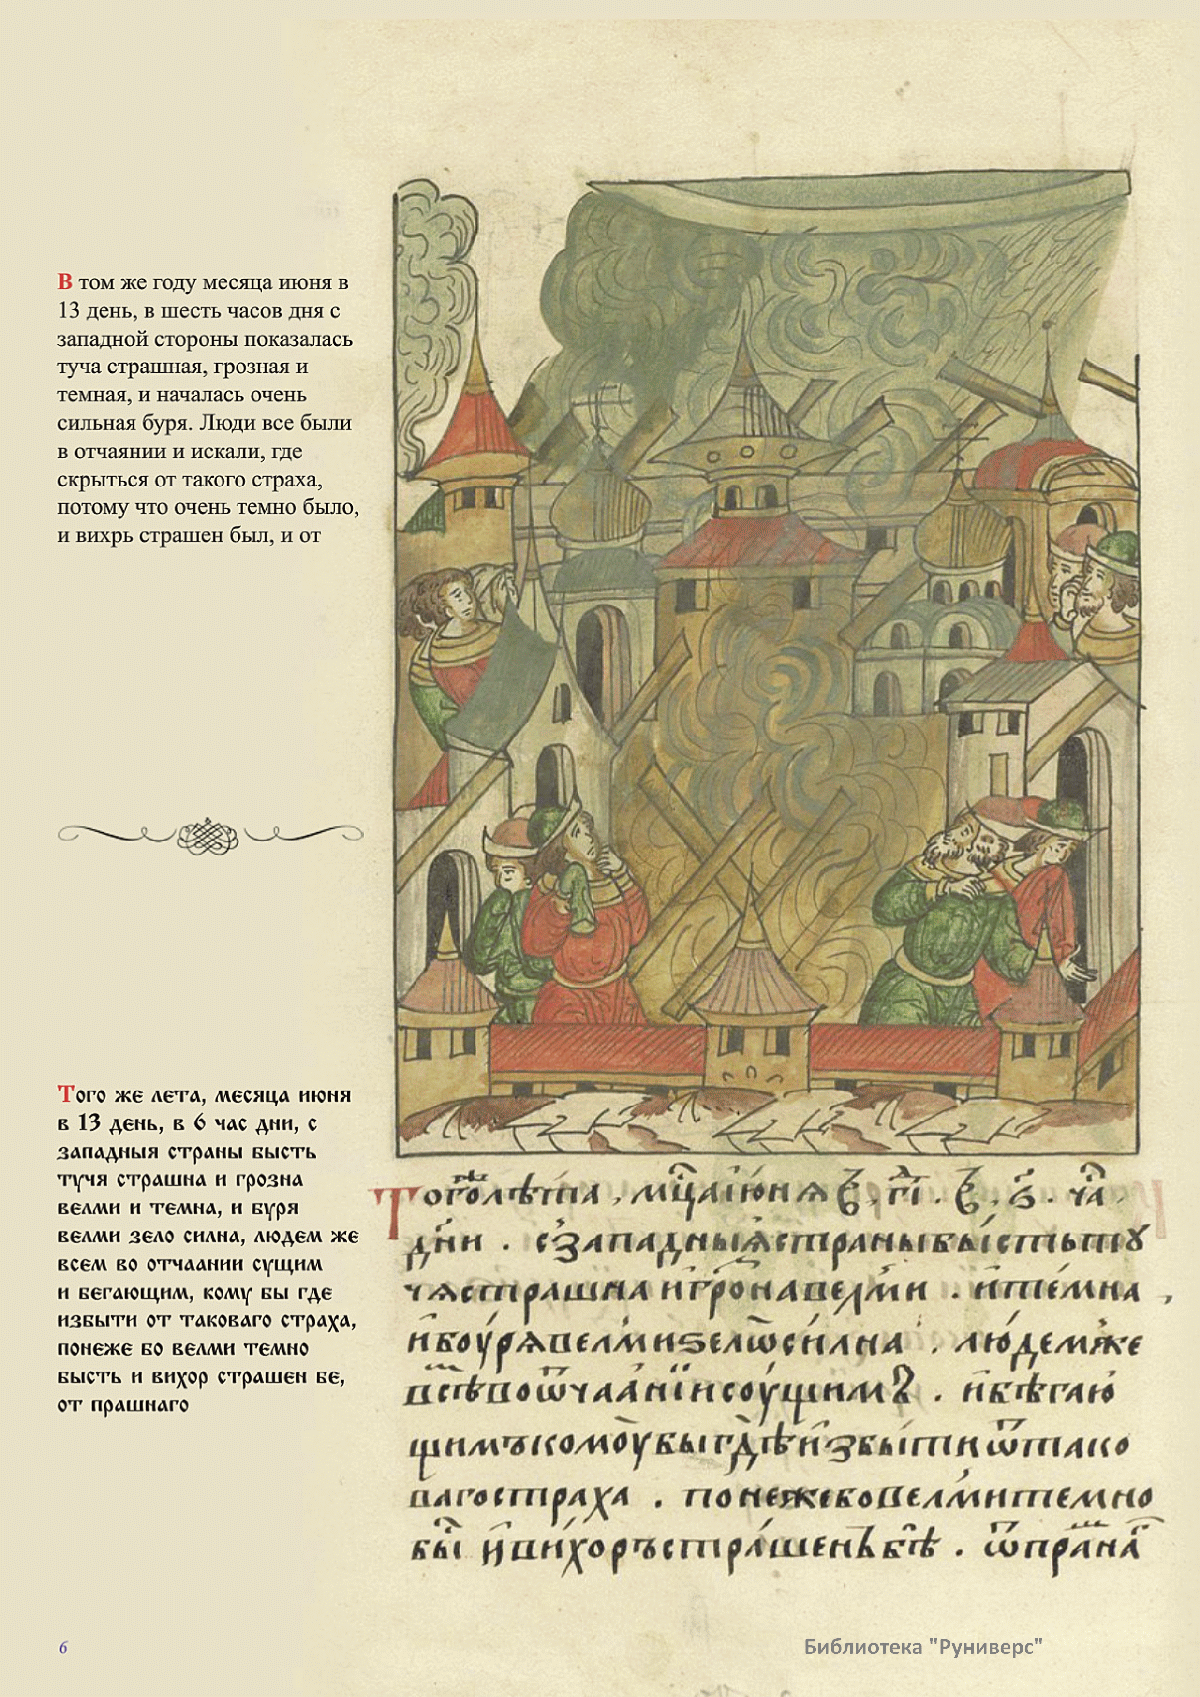 В том же году месяца июня в
13 день, в шесть часов дня с
западной стороны показалась
туча страшная, грозная и
темная, и началась очень
сильная буря. Люди все были
в отчаянии и искали, где
скрыться от такого страха,
потому что очень темно было,
и вихрь страшен был, и от
Того же лета, месяца июня
в 13 день, в 6 час дни, с
западныя страны бысть
тучя страшна и грозна
велми и темна, и буря
велми зело силна, людем же
всем во отчаании сущим
и бегающим, кому бы где
избыти от таковаго страха,
понеже бо велми темно
бысть и вихор страшен бе,
от прашнаго
Тогоⷤлѣта, мцⷭаіюня в, г҃і. в, ѕ҃. чаⷭ
дни. сзападныѧстраныбыⷭстьту
чѧстрашна игроⷥнавелми. итемна,
ибоурѧвелмиѕелѡсилна, людемже
всѣⷨвоѿчааніисоущимъ. ибѣгаю
щимъкомоубыгдѣизбытиѿтако
вагостраха. понежебовелмитемно
быⷭ ивихоръстрашенъбѣ. ѿпраⷲнаⷢ
6
Библиотека "Руниверс"